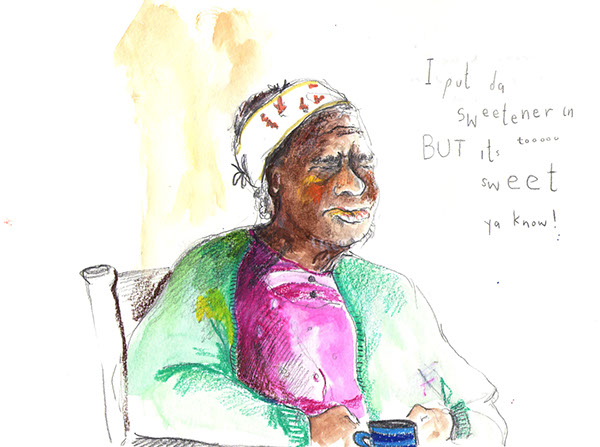 I put da
sweetener in
BUT its tooooo
sweet
ya know!